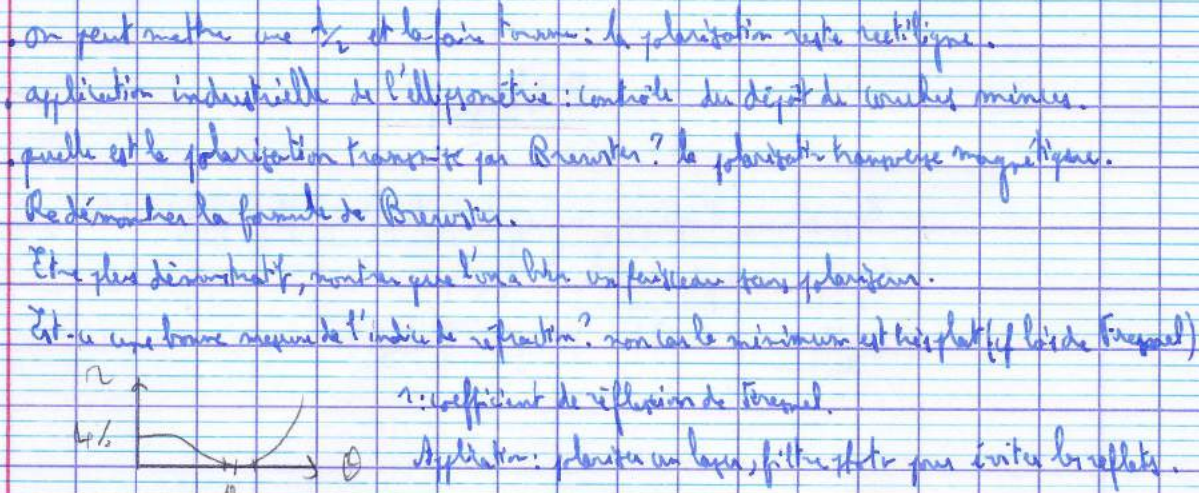 . on peut mettre une λ/2 et la faire tourner : la polarisation reste rectiligne.
. application industrielle de l'ellipsométrie : contrôle du dépôt de couches minces.
. quelle est la polarisation transmise par Brewster ? la polarisation transverse magnétique.
Redémontrer la formule de Brewster.
Etre plus démonstratif, montrer que l'on a bien un faisceau sans polariseur.
Est-ce une bonne mesure de l'indice de réfraction ? non car le minimum est très plat (cf lois de Fresnel)
r
4%
θ
r : coefficient de réflexion de Fresnel.
Application : polariser un laser, filtre photo pour éviter les reflets.